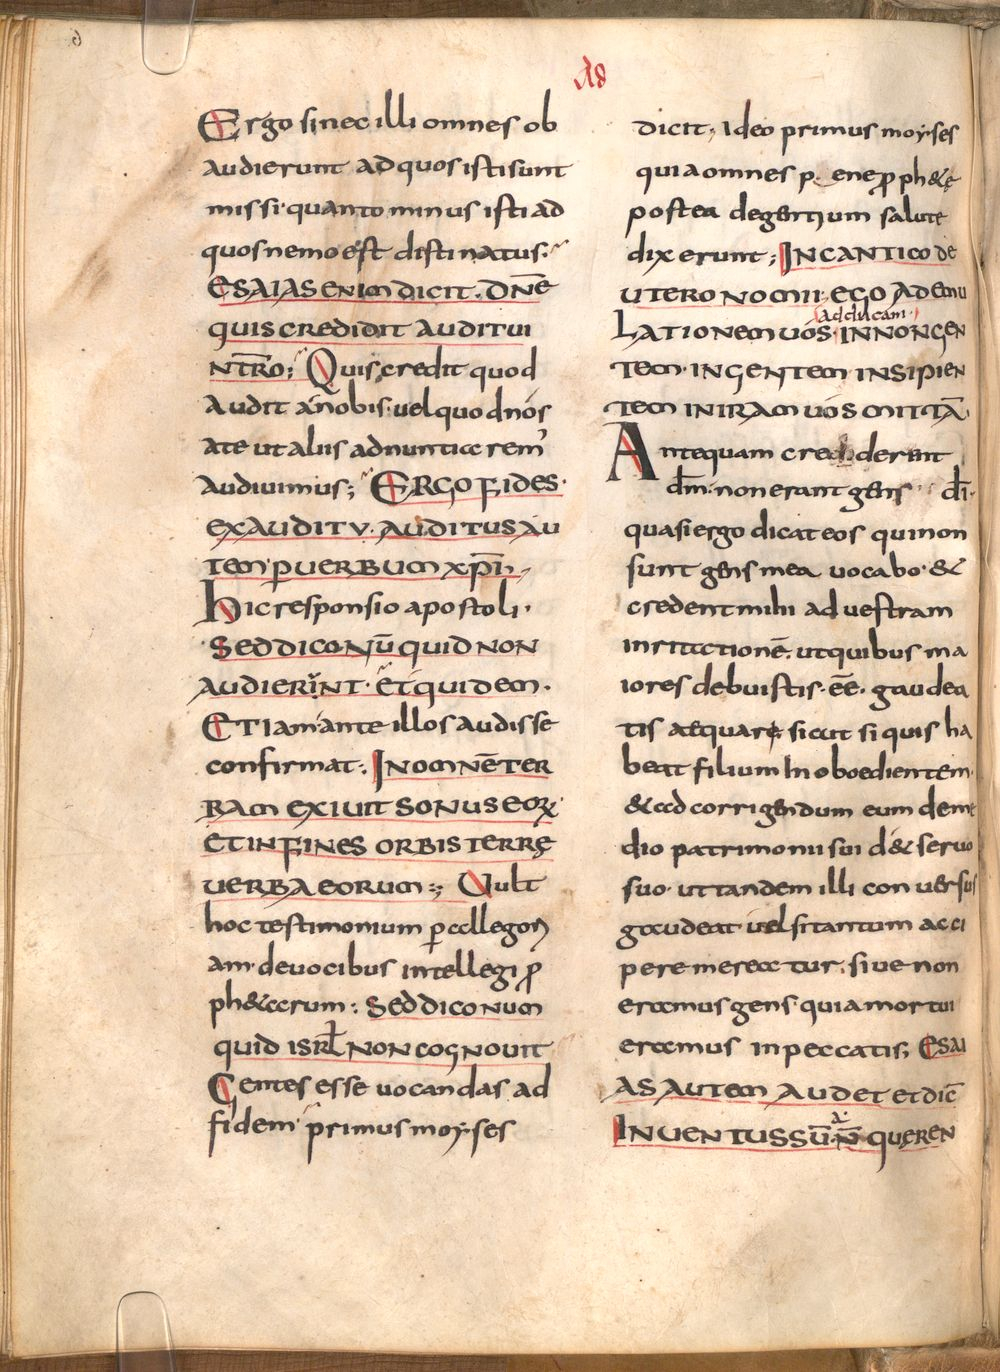 Ergo sinec illi omnes ob
audierunt adquos isti sunt
missi quanto minus isti ad
quos nemo est distinatus.
ESAIAS ENIM DICIT. DNE
QUIS CREDIDIT AUDITUI
NTRO; Quis credit quod
audit anobis. uel quod nos
ate ut aliis adnuntiaremus
audiuimus; ERGO FIDES.
EX AUDITV. AUDITUS AU
TEM P UERBUM XPI.
Hic responsio apostoli.
SED DICO NU QUID NON
AUDIERINT. ET QUIDEM.
ETIAM ante illos audisse
confirmat. IN OMNE TER
RAM EXIUIT SONUS EORX
ET IN FINES ORBIS TERRĘ
UERBA EORUM; Uult
hoc testimonium p allegori
am. deuocibus intellegi p
ph&arum: SED DICO NUM
QUID ISRL NON COGNOUIT
Gentes esse uocandas ad
fidem primus moy.ses
dicit; Ideo primus moy.ses
quia omnes p. ene p ph&ę
postea degentium salute
dixerunt; IN CANTICO DE
UTERO NOMII. EGO AD EMU
adducam
LATIONEM UOS. IN NON GEN
TEM. IN GENTEM INSIPIEN
TEM IN IRAM UOS MITTA
Antequam crediderent
dm. non erant gens di.
quasi ergo dicat eos qui non
sunt gens mea uocabo. &
credent mihi ad uestram
inritationē. ut quibus ma
iores debuistis. eē. gaudea
tis aequare sicut si quis ha
beat filium Inoboedientem.
& ad corrigendum eum deme
dio patrimonii sui d& seruo
suo. ut tandem illi conuersus
gaudeat uel si tantum acci
pere mereatur. siue non
eramus gens. quia mortui
eramus inpeccatis; ESAI
AS AUTEM AUDET ET DIC
a.
INUENTUS SU. N QUĘREN